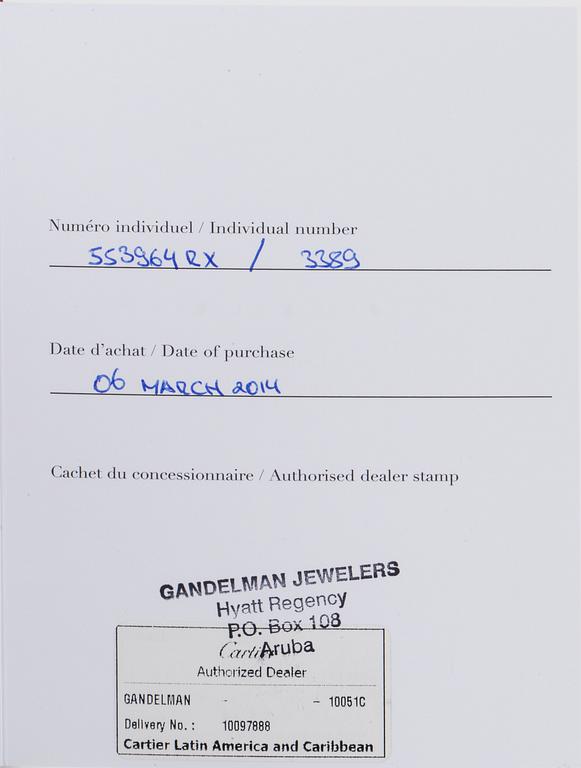 Numéro individuel / Individual number
553964RX / 3389
Date d'achat / Date of purchase
06 MARCH 2014
Cachet du concessionnaire / Authorised dealer stamp
GANDELMAN JEWELERS
Hyatt Regency
P.O. Box 108
Aruba
Cartier
Authorized Dealer
GANDELMAN - - 10051C
Delivery No. : 10097888
Cartier Latin America and Caribbean